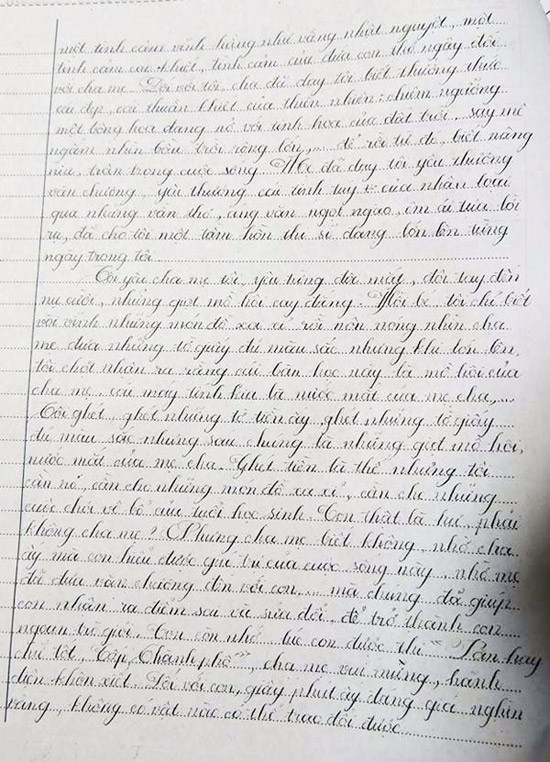 một tình cảm vĩnh hằng như vầng nhật nguyệt, một
tình cảm cao khiết, tình cảm của đứa con thơ ngây đối
với cha mẹ. Đối với tôi, cha đã dạy tôi biết thưởng thức
cái đẹp, cái thuần khiết của thiên nhiên: chiêm ngưỡng
một bông hoa đang nở với tinh hoa của đất trời, say mê
ngắm nhìn bầu trời rộng lớn,... để rồi từ đó, biết nâng
niu, trân trọng cuộc sống. Mẹ đã dạy tôi yêu thương
văn chương, yêu thương cái tinh tuý của nhân loại
qua những vần thơ, áng văn ngọt ngào, êm ái tựa lời
ru, đã cho tôi một tâm hồn thi sĩ đang lớn lên từng
ngày trong tôi.
Tôi yêu cha mẹ tôi, yêu từng đôi mắt, đôi tay đến
nụ cười, những giọt mồ hôi cay đắng. Thời bé, tôi chỉ biết
vòi vĩnh những món đồ xa xỉ rồi nôn nóng nhìn cha
mẹ đưa những tờ giấy đủ màu sắc nhưng khi lớn lên,
tôi chợt nhận ra rằng cái bàn học này là mồ hôi của
cha mẹ, cái máy tính kia là nước mắt của mẹ cha,...
Tôi ghét, ghét những tờ tiền ấy, ghét những tờ giấy
đủ màu sắc nhưng sau chúng là những giọt mồ hôi,
nước mắt của mẹ cha. Ghét tiền là thế nhưng tôi
cần nó, cần cho những món đồ xa xỉ, cần cho những
cuộc chơi vô bổ của tuổi học sinh. Con thật là hư, phải
không cha mẹ? Nhưng cha mẹ biết không, nhờ cha
ấy mà con hiểu được giá trị của cuộc sống này, nhờ mẹ
đã đưa văn chương đến với con,... mà chúng đã giúp
con nhận ra điểm sai và sửa đổi, để trở thành con
ngoan trò giỏi. Con còn nhớ lúc con được thi "
chữ tốt" Cấp Thành phố", cha mẹ vui mừng, hãnh
diện khôn xiết. Đối với con, giây phút ấy đáng giá nghìn
vàng, không có vật nào có thể trao đổi được.